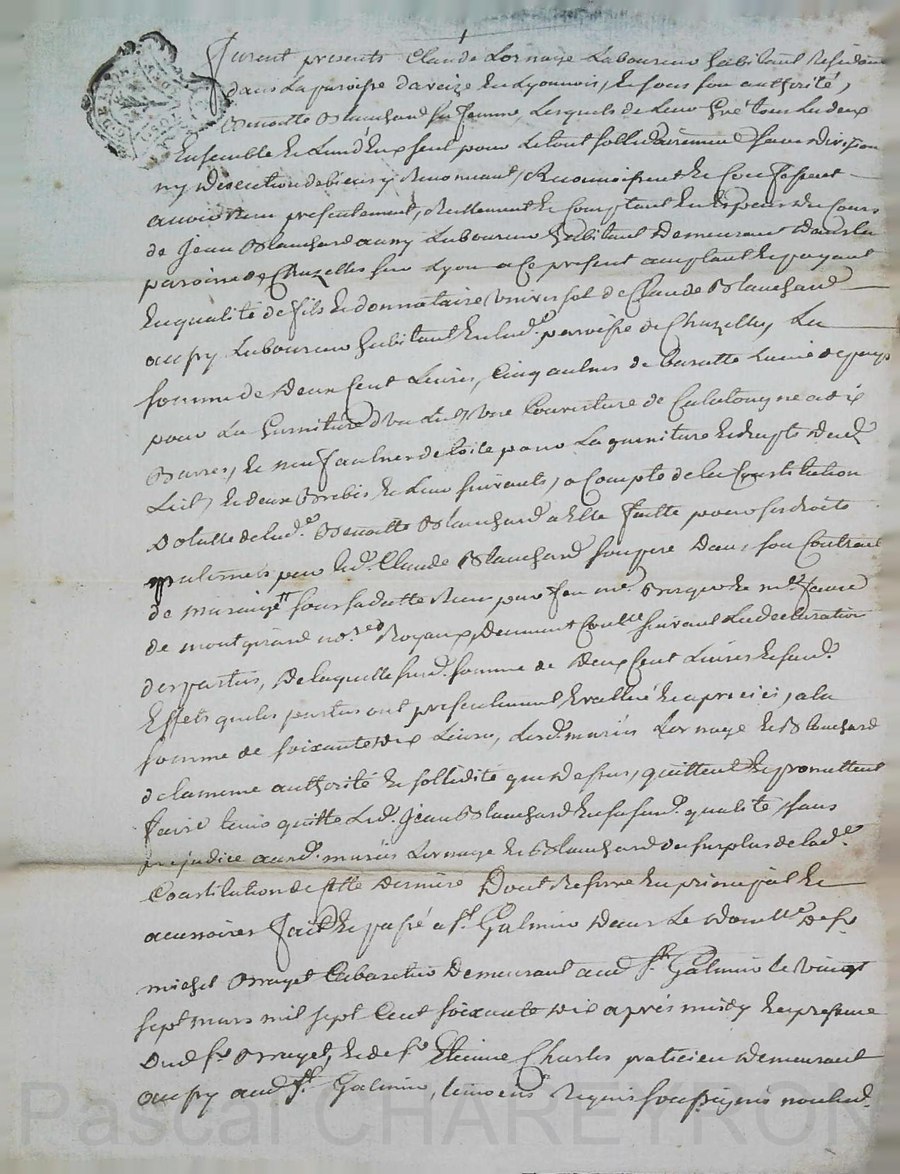 furent presents Claude Lornage Laboureur habitant Residant
dans La paroisse d'aveize en Lyonnois, et sous son authorité,
Benoitte Blanchard sa femme, Lesquels de Leur Gré tous Les deux
Ensemble et Lun d'Eux seul pour Le tout sollidairement sans Division
ny discution de biens y Renonceant, Reconnoissent et Confessent
avoir Reçu presentement, Reellement et Comptant En Especes du Cours
de Jean Blanchard aussy Laboureur habitant Demeurant dans la
paroisse de Chazelles sur Lyon a Ce present aceptant et payant
En qualité de fils et donnataire Universel de Claude Blanchard
aussy Laboureur habitant En lad.e paroisse de Chazelles, La
somme de Deux Cent Livres, Cinq aulnes de
pour La Garniture d'un Lit, Une Couverture de Catalougne a dix
Barres, et neuf aulnes de toile pour La garniture
Lit, et deux Brebis et Leur suivants, a Compte de la Constitution
Dotalle de lad.e Benoitte Blanchard a Elle faitte pour ses droits
paternels par led. Claude Blanchard son pere Dans son Contract
de mariage sous sa datte Reçu par feu me. et me. faure
de montgirard no.res Royaux, Deument Controllé suivant La declaration
des parties, De laquelle susd. somme de Deux Cent Livres et susd.
Effets que les parties ont presentement Evallué et aprecié, a la
somme de soixante dix Livres, Lesd. mariés Lornage et Blanchard
de la meme authorité et sollidité que dessus, quittent et promettent
faire tenir quitte Led. Jean Blanchard En sa susd. qualité, sans
prejudice auxd. mariés Lornage et Blanchard du surplus de lad.e
Constitution de Cette Derniere Dont Reserve En principal et
accessoires fait et passé a St. Galmier dans Le domicille de sr.
michel Bruyet Cabaretier Demeurant aud St. Galmier le vingt
sept mars mil sept Cent soixante dix après midy En presence
Dud sr. Bruyet, et de sr. Etienne Charles praticien Demeurant
aussy aud St. Galmier, temoins Requis soussignés
Pascal CHAREYRON